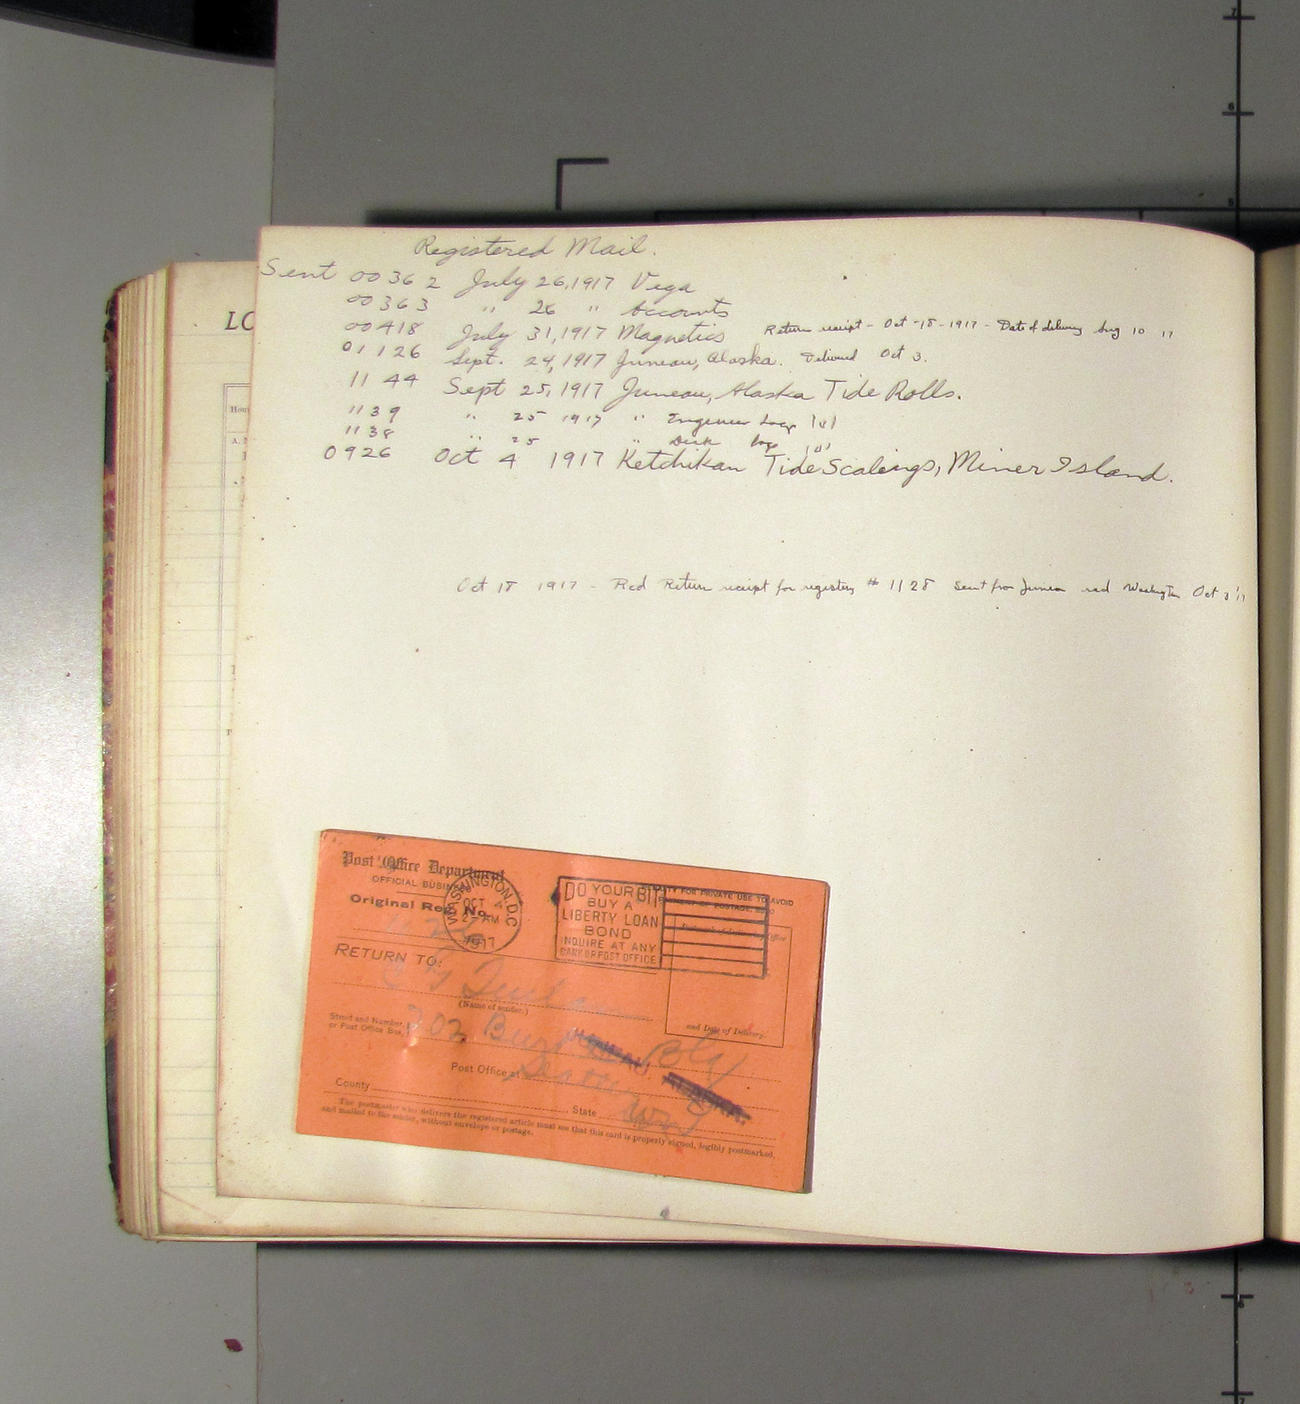 LO
Registered Mail.
Sent 00362 July 26, 1917 Vega
00363 " 26 " Accounts
00418 July 31, 1917 Magnetics Return receipt - Oct-18-1917 - Date of delivery Aug 10 17
01126 Sept. 24, 1917 Juneau, Alaska. Delivered Oct 3.
1144 Sept 25, 1917 Juneau, Alaska Tide Rolls.
1139 " 25 1917 " Engineer Logs
1138 " 25 " Deck Logs
0926 Oct 4 1917 Ketchikan Tide Scalings, Miner Island.
Oct 18 1917 - Red Return receipt for registry # 1128 Sent from Juneau recd Washington Oct 3 '17
Post Office Department
OFFICIAL BUSINESS
Original Reg. No.
WASHINGTON, D.C.
OCT 4
2-AM
1917
DO YOUR BIT
BUY A
LIBERTY LOAN
BOND
INQUIRE AT ANY
BANK OR POST OFFICE
FOR PRIVATE USE TO AVOID
PAYMENT OF POSTAGE, $300
RETURN TO:
(Name of sender.)
Street and Number,
or Post Office Box,
202 Burke Bldg
and Date of Delivery.
JUNEAU,
ALASKA.
Post Office at
Seattle
County
State
Wn
The postmaster who delivers the registered article must see that this card is properly signed, legibly postmarked,
and mailed to the sender, without envelope or postage.